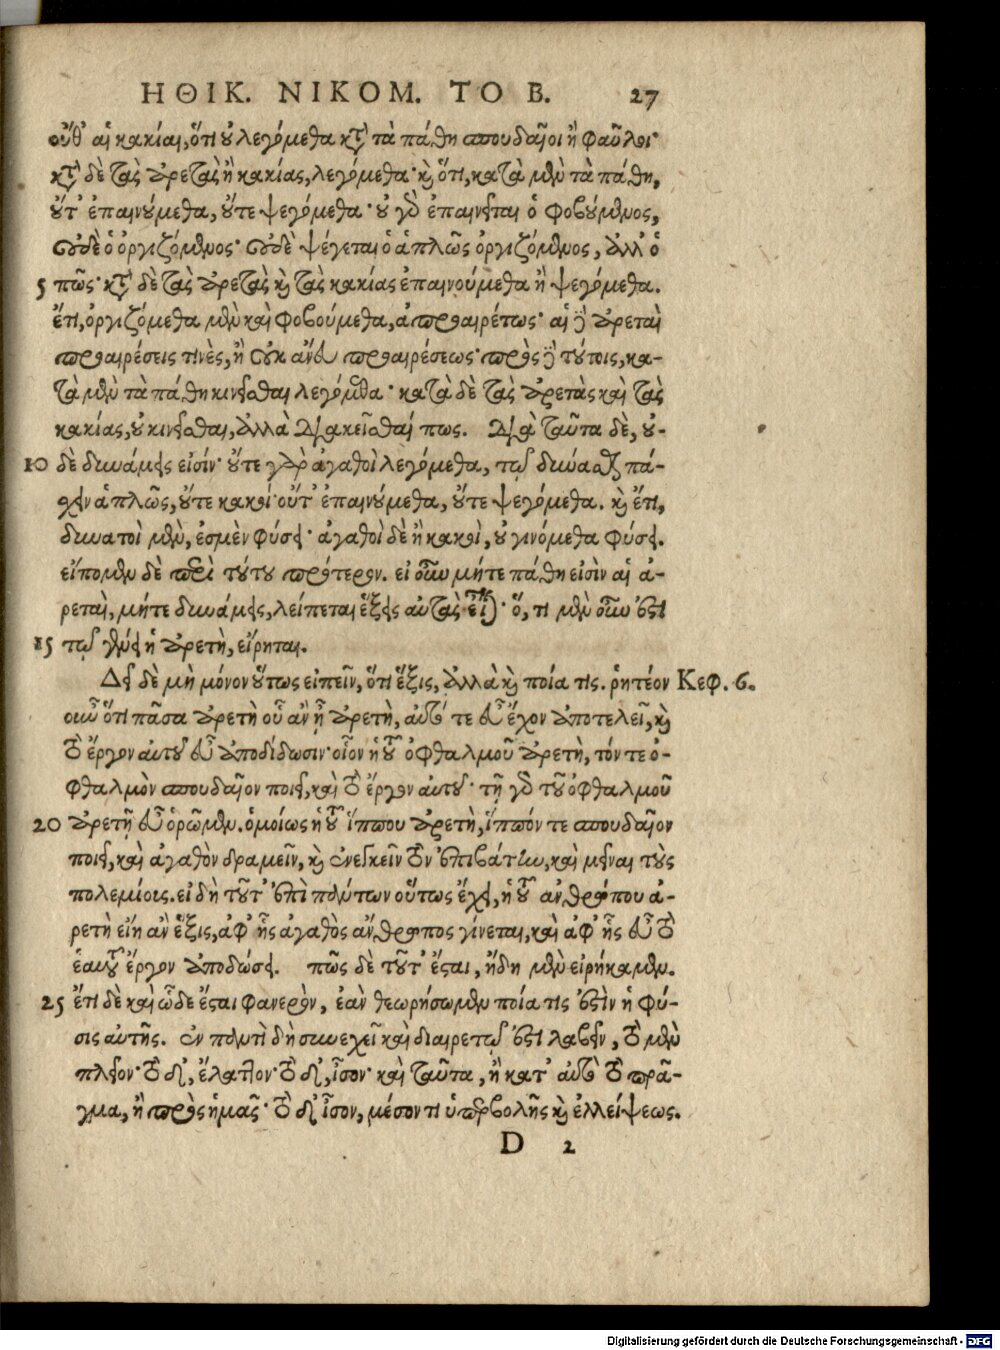 ΗΘΙΚ. ΝΙΚΟΜ. ΤΟ Β. 27
οὔθ' αἱ κακίαι, ὅτι οὐ λεγόμεθα κατὰ τὰ πάθη σπουδαῖοι ἢ φαῦλοι·
κατὰ δὲ τὰς ἀρετὰς ἢ κακίας, λεγόμεθα· καὶ ὅτι, κατὰ μὲν τὰ πάθη,
οὔτ' ἐπαινούμεθα, οὔτε ψεγόμεθα· οὐ γὰρ ἐπαινεῖται ὁ φοβούμενος,
οὐδὲ ὁ ὀργιζόμενος· οὐδὲ ψέγεται ὁ ἁπλῶς ὀργιζόμενος, ἀλλ' ὁ
5 πῶς· κατὰ δὲ τὰς ἀρετὰς καὶ τὰς κακίας ἐπαινούμεθα ἢ ψεγόμεθα.
ἔτι, ὀργιζόμεθα μὲν καὶ φοβούμεθα, ἀπροαιρέτως· αἱ δὲ ἀρεταὶ
προαιρέσεις τινὲς, ἢ οὐκ ἄνευ προαιρέσεως· πρὸς δὲ τούτοις, κα-
τὰ μὲν τὰ πάθη κινεῖσθαι λεγόμεθα· κατὰ δὲ τὰς ἀρετὰς καὶ τὰς
κακίας, οὐ κινεῖσθαι, ἀλλὰ διακεῖσθαί πως. Διὰ ταῦτα δὲ, οὐ-
10 δὲ δυνάμεις εἰσίν· οὔτε γὰρ ἀγαθοὶ λεγόμεθα, τῷ δύνασθαι πά-
σχειν ἁπλῶς, οὔτε κακοί· οὔτ' ἐπαινούμεθα, οὔτε ψεγόμεθα. καὶ ἔτι,
δυνατοὶ μὲν, ἐσμὲν φύσει· ἀγαθοὶ δὲ ἢ κακοὶ, οὐ γινόμεθα φύσει.
εἴπομεν δὲ περὶ τούτου πρότερον. εἰ οὖν μήτε πάθη εἰσὶν αἱ ἀ-
ρεταὶ, μήτε δυνάμεις, λείπεται ἕξεις αὐτὰς εἶναι· ὅ, τι μὲν οὖν ἐστὶ
15 τῷ γένει ἡ ἀρετὴ, εἴρηται.
Δεῖ δὲ μὴ μόνον οὕτως εἰπεῖν, ὅτι ἕξις, ἀλλὰ καὶ ποία τις. ῥητέον Κεφ. 6.
οὖν ὅτι πᾶσα ἀρετὴ οὗ ἂν ᾖ ἀρετὴ, αὐτό τε εὖ ἔχον ἀποτελεῖ, καὶ
τὸ ἔργον αὐτοῦ εὖ ἀποδίδωσιν· οἷον ἡ τοῦ ὀφθαλμοῦ ἀρετὴ, τόν τε ὀ-
φθαλμὸν σπουδαῖον ποιεῖ, καὶ τὸ ἔργον αὐτοῦ· τῇ γὰρ τοῦ ὀφθαλμοῦ
20 ἀρετῇ εὖ ὁρῶμεν. ὁμοίως ἡ τοῦ ἵππου ἀρετὴ, ἵππόν τε σπουδαῖον
ποιεῖ, καὶ ἀγαθὸν δραμεῖν, καὶ ἐνεγκεῖν τὸν ἐπιβάτην, καὶ μεῖναι τοὺς
πολεμίους. εἰ δὴ τοῦτ' ἐπὶ πάντων οὕτως ἔχει, ἡ τοῦ ἀνθρώπου ἀ-
ρετὴ εἴη ἂν ἕξις, ἀφ' ἧς ἀγαθὸς ἄνθρωπος γίνεται, καὶ ἀφ' ἧς εὖ τὸ
ἑαυτοῦ ἔργον ἀποδώσει. πῶς δὲ τοῦτ' ἔσται, ἤδη μὲν εἰρήκαμεν.
25 ἔτι δὲ καὶ ὧδε ἔσται φανερὸν, ἐὰν θεωρήσωμεν ποία τις ἐστὶν ἡ φύ-
σις αὐτῆς. ἐν παντὶ δὴ συνεχεῖ καὶ διαιρετῷ ἐστὶ λαβεῖν, τὸ μὲν
πλεῖον· τὸ δ', ἔλαττον· τὸ δ', ἴσον· καὶ ταῦτα, ἢ κατ' αὐτὸ τὸ πρᾶ-
γμα, ἢ πρὸς ἡμᾶς· τὸ δ' ἴσον, μέσον τι ὑπερβολῆς καὶ ἐλλείψεως.
D 2
Digitalisierung gefördert durch die Deutsche Forschungsgemeinschaft - DFG